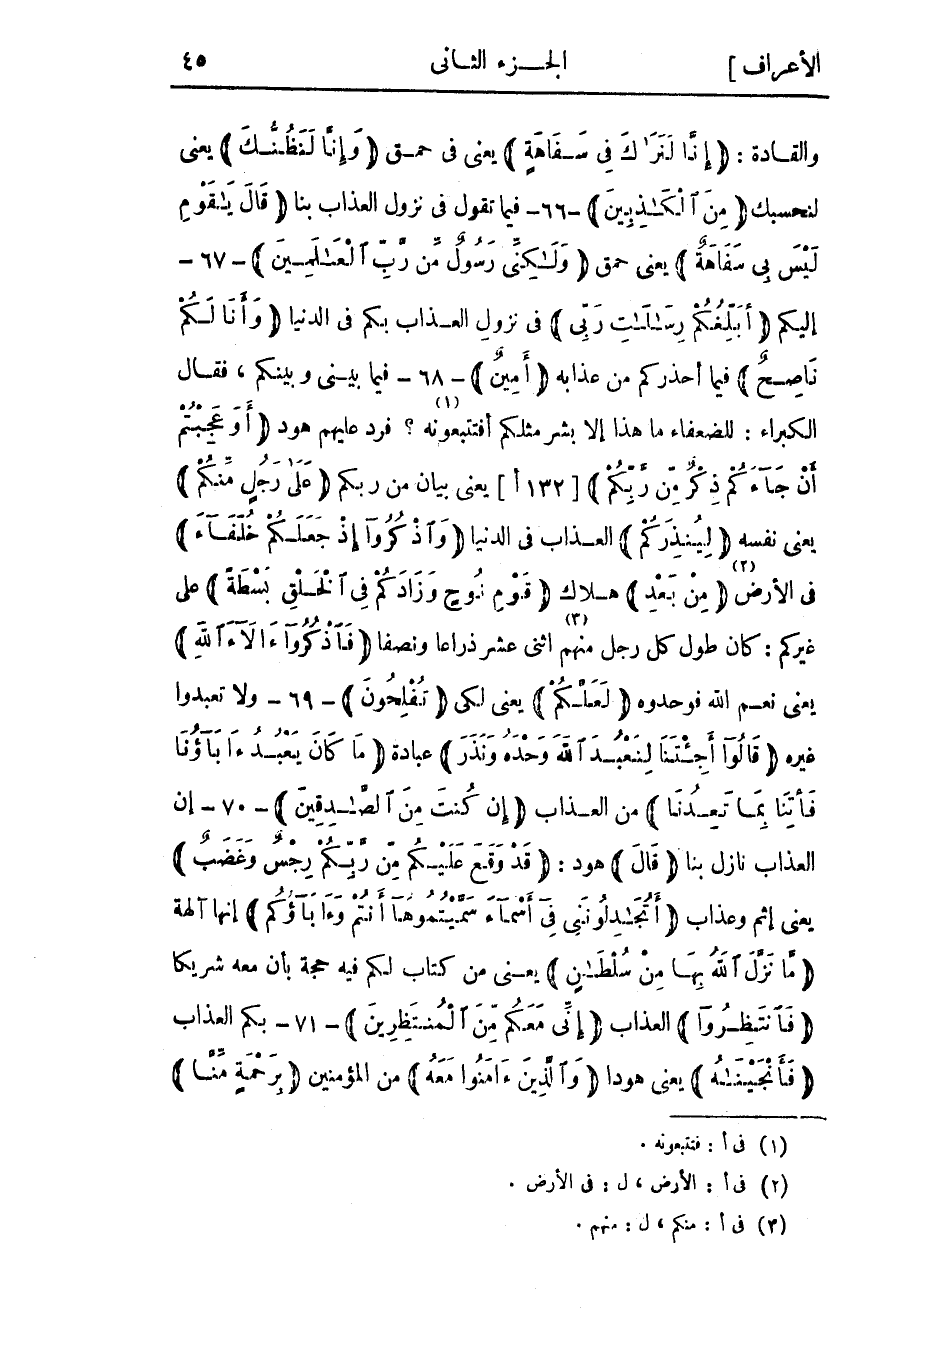 الأعراف ] الجـــزء الثــانى ٤٥
والقــادة : ( إِنَّا لَنَرَىٰكَ فِى سَــفَاهَةٍ ) يعنى فى حمــق ( وَإِنَّا لَنَظُنُّــكَ ) يعنى
لنحسبك ( مِنَ ٱلْكَـٰذِبِينَ ) -٦٦- فيما تقول فى نزول العذاب بنا ( قَالَ يَـٰقَوْمِ
لَيْسَ بِى سَفَاهَةٌ ) يعنى حمق ( وَلَـٰكِنِّى رَسُولٌ مِّن رَّبِّ ٱلْعَـٰلَمِــينَ ) - ٦٧ -
إليكم ( أُبَلِّغُكُمْ رِسَـٰلَـٰتِ رَبِّى ) فى نزول العــذاب بكم فى الدنيا ( وَأَنَا لَــكُمْ
نَاصِــحٌ ) فيما أحذركم من عذابه ( أَمِينٌ ) - ٦٨ - فيما بيــنى وبينكم ، فقــال
الكبراء : للضعفاء ما هذا إلا بشر مثلكم أفتتبعونه (١) ؟ فرد عليهم هود ( أَوَ عَجِبْتُمْ
أَنْ جَآءَكُمْ ذِكْرٌ مِّن رَّبِّكُمْ ) [ ١٣٢ أ ] يعنى بيان من ربكم ( عَلَىٰ رَجُلٍ مِّنكُمْ )
يعنى نفسه ( لِيُنذِرَكُمْ ) العــذاب فى الدنيا ( وَٱذْكُرُوٓا إِذْ جَعَلَــكُمْ خُلَفَــآءَ )
فى الأرض (٢) ( مِنْ بَعْدِ ) هــلاك ( قَوْمِ نُوحٍ وَزَادَكُمْ فِى ٱلْخَــلْقِ بَسْطَةً ) على
غيركم : كان طول كل رجل منهم (٣) اثنى عشر ذراعا ونصفا ( فَٱذْكُرُوٓا ءَالَآءَ ٱللَّهِ )
يعنى نعــم الله فوحدوه ( لَعَلَّــكُمْ ) يعنى لكى ( تُفْلِحُونَ ) - ٦٩ - ولا تعبدوا
غيره ( قَالُوٓا أَجِئْتَنَا لِنَعْبُــدَ ٱللَّهَ وَحْدَهُ وَنَذَرَ ) عبادة ( مَا كَانَ يَعْبُــدُ ءَابَآؤُنَا
فَأْتِنَا بِمَــا تَعِــدُنَا ) من العــذاب ( إِن كُنتَ مِنَ ٱلصَّـٰدِقِينَ ) - ٧٠ - إن
العذاب نازل بنا ( قَالَ ) هود : ( قَدْ وَقَعَ عَلَيْــكُم مِّن رَّبِّــكُمْ رِجْسٌ وَغَضَبٌ )
يعنى إثم وعذاب ( أَتُجَـٰدِلُونَنِى فِىٓ أَسْمَآءٍ سَمَّيْتُمُوهَآ أَنتُمْ وَءَابَآؤُكُم ) إنها آلهة
( مَّا نَزَّلَ ٱللَّهُ بِهَــا مِنْ سُلْطَـٰنٍ ) يعــنى من كتاب لــكم فيه حجة بأن معه شريكا
( فَٱنتَظِــرُوٓا ) العذاب ( إِنِّى مَعَكُم مِّنَ ٱلْمُنتَظِرِينَ ) - ٧١ - بكم العذاب
( فَأَنْجَيْنَـٰهُ ) يعنى هودا ( وَٱلَّذِينَ ءَامَنُوا مَعَهُ ) من المؤمنين ( بِرَحْمَةٍ مِّنَّــا )
(١) فى أ : فتتبعونه .
(٢) فى أ : الأرض ، ل : فى الأرض .
(٣) فى أ : منكم ، ل : منهم .